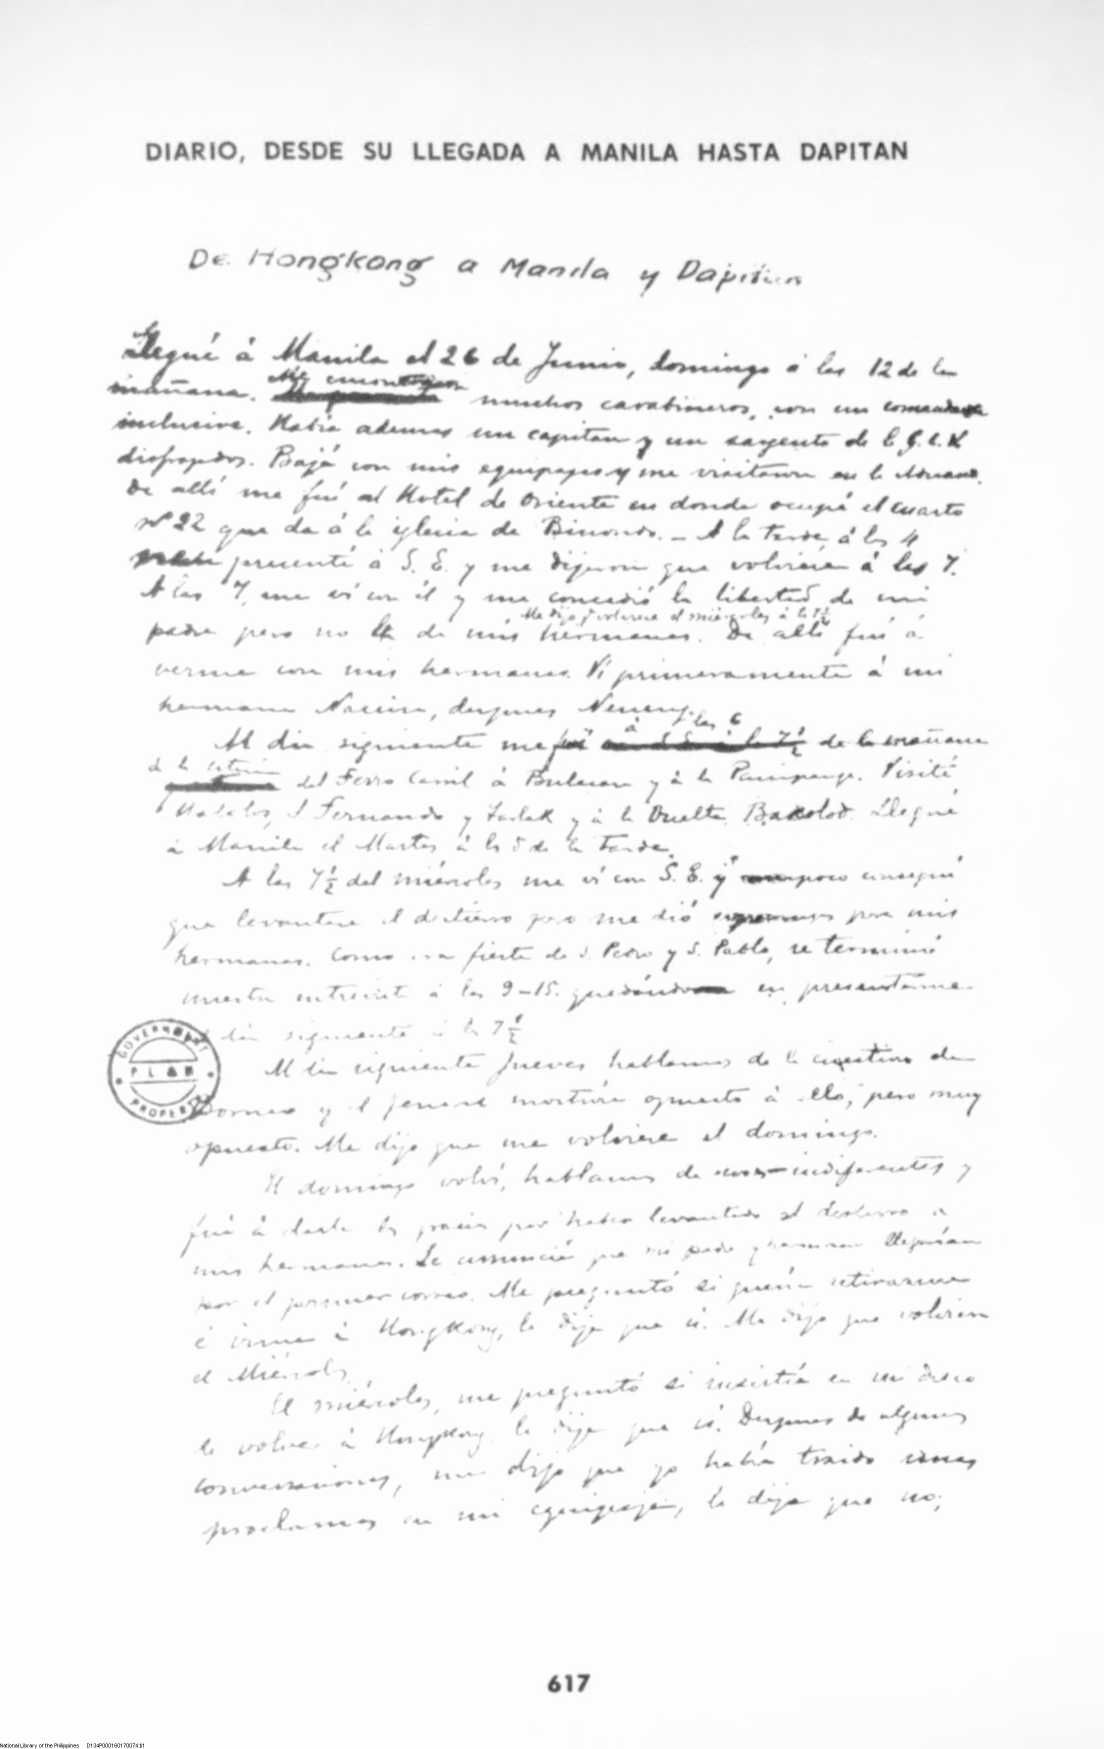 DIARIO, DESDE SU LLEGADA A MANILA HASTA DAPITAN
De Hongkong a Manila y Dapitan
Llegué á Manila el 26 de Junio, domingo á las 12 de la
mañana. Me encontraron muchos carabineros, con un comandante
inclusive. Había ademas un capitan y un sargento de
disfrazados. Bajé con mis equipages y me visitaron en la Aduana.
De allí me fuí al Hotel de Oriente en donde ocupé el cuarto
nº 22 que da á la iglesia de Binondo. — A la tarde, á las 4
me presenté á S. E. y me dijeron que volviera á las 7.
A las 7, me ví con él y me concedió la libertad de mi
Me dijo volviese el miércoles á las 7½
padre pero no la de mis hermanas. De allí fuí á
verme con mis hermanas. Ví primeramente á mi
hermana Narcisa, despues Neneng.
á las 6
Al dia siguiente me fuí de la mañana
á la estacion del Ferro Carril á Bulacan y á la Pampanga. Visité
Malolos, S. Fernando y Tarlak y á la vuelta, Bakolod. Llegué
á Manila el Martes á las 5 de la tarde.
A las 7½ del miércoles me ví con S. E. y tampoco conseguí
que levantase el destierro pero me dió esperanzas para mis
hermanas. Como era fiesta de S. Pedro y S. Pablo, se terminó
nuestra entrevista á las 9-15. quedando en presentarme
el dia siguiente á las 7½
Al dia siguiente Jueves hablamos de la cuestion de
Borneo y el general mostróse opuesto á ello, pero muy
opuesto. Me dijo que me volviese el domingo.
El domingo volví, hablamos de cosas indiferentes y
fuí á darle las gracias por haber levantado el destierro a
mis hermanas. Le anuncié que mi padre y hermanas llegarían
por el primer correo. Me preguntó si quería retirarme
é irme á Hongkong, le dije que sí. Me dijo que volviera
el Miércoles.
El miércoles, me preguntó si insistía en mi deseo
de volver á Hongkong le dije que sí. Despues de algunas
conversaciones, me dijo que yo había traido unas
proclamas en mi equipaje, le dije que no;
GOVERNMENT
PROPERTY
617
National Library of the Philippines D134P000160170074.tif